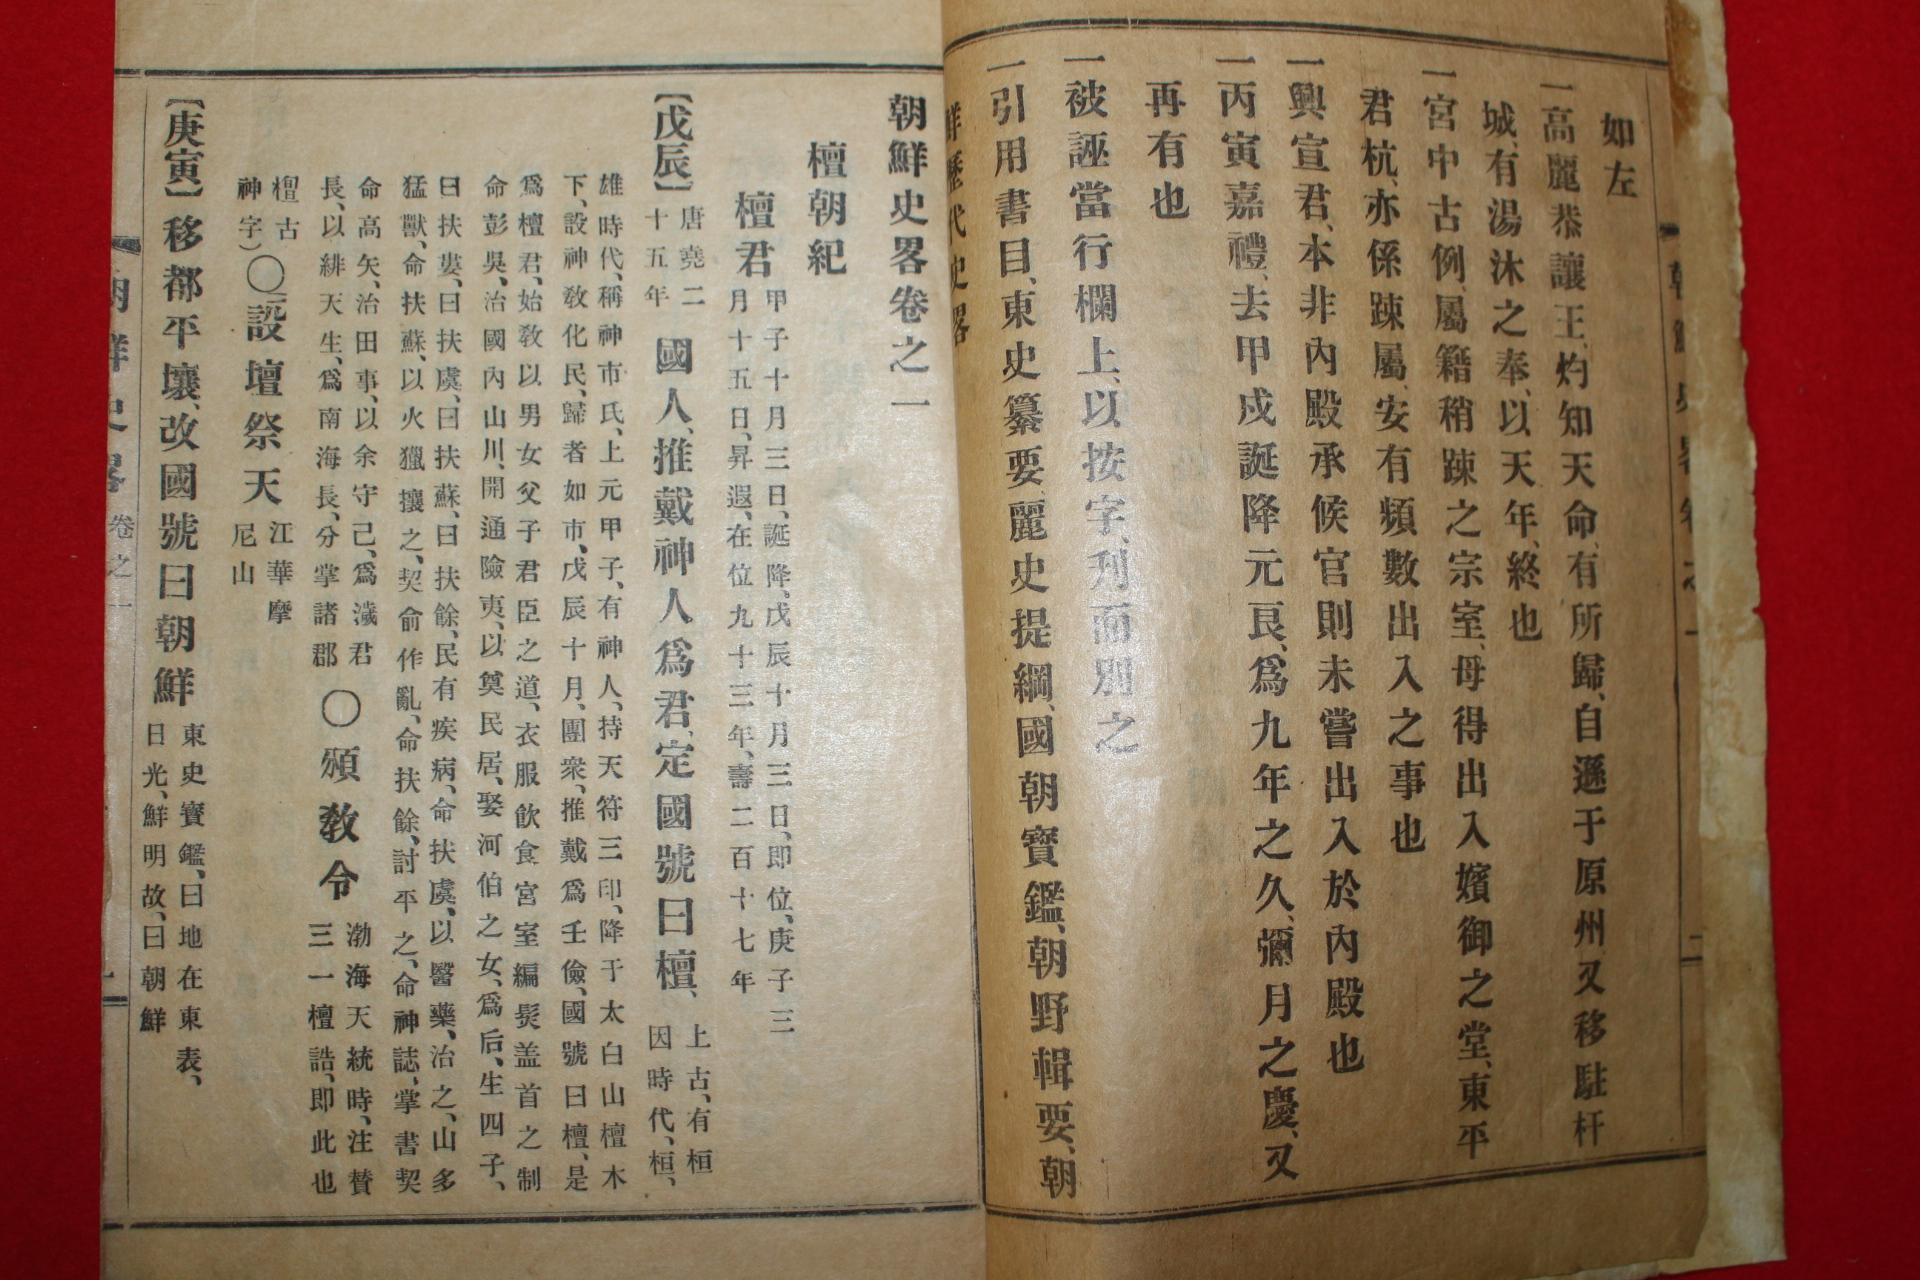 如左
一高麗恭讓王、灼知天命、有所歸、自遜于原州、又移駐杆
城、有湯沐之奉、以天年、終也
一宮中古例、屬籍稍踈之宗室、母得出入嬪御之堂、東平
君杭、亦係踈屬、安有頻數出入之事也
一興宣君、本非內殿承候官則未嘗出入於內殿也
一丙寅嘉禮、去甲戌誕降元良、爲九年之久、彌月之慶、又
再有也
一被誣當行欄上、以按字、刋而別之
一引用書目、東史纂要、麗史提綱、國朝寶鑑、朝野輯要、朝
鮮歷代史畧
朝鮮史畧卷之一
檀朝紀
檀君
甲子十月三日、誕降、戊辰十月三日、即位、庚子三
月十五日、昇遐、在位九十三年、壽二百十七年
【戊辰】
唐堯二
十五年
國人、推戴神人爲君、定國號曰檀、
上古、有桓
因時代、桓、
雄時代、稱神市氏、上元甲子、有神人、持天符三印、降于太白山檀木
下、設神敎化民、歸者如市、戊辰十月、團衆、推戴爲壬儉、國號曰檀、是
爲檀君、始敎以男女父子君臣之道、衣服飮食宮室編髮盖首之制
命彭吳、治國內山川、開通險夷、以奠民居、娶河伯之女、爲后、生四子、
曰扶婁、曰扶虞、曰扶蘇、曰扶餘、民有疾病、命扶虞、以醫藥、治之、山多
猛獸、命扶蘇、以火獵攘之、契俞作亂、命扶餘、討平之、命神誌、掌書契
命高矢、治田事、以余守己、爲濊君
長、以緋天生、爲南海長、分掌諸郡
〇頒敎令
渤海天統時、注贊
三一檀誥、即此也
檀古
神字)
〇設壇祭天
江華摩
尼山
【庚寅】移都平壤、改國號曰朝鮮
東史寶鑑、曰地在東表、
日光、鮮明故、曰朝鮮
卷之一